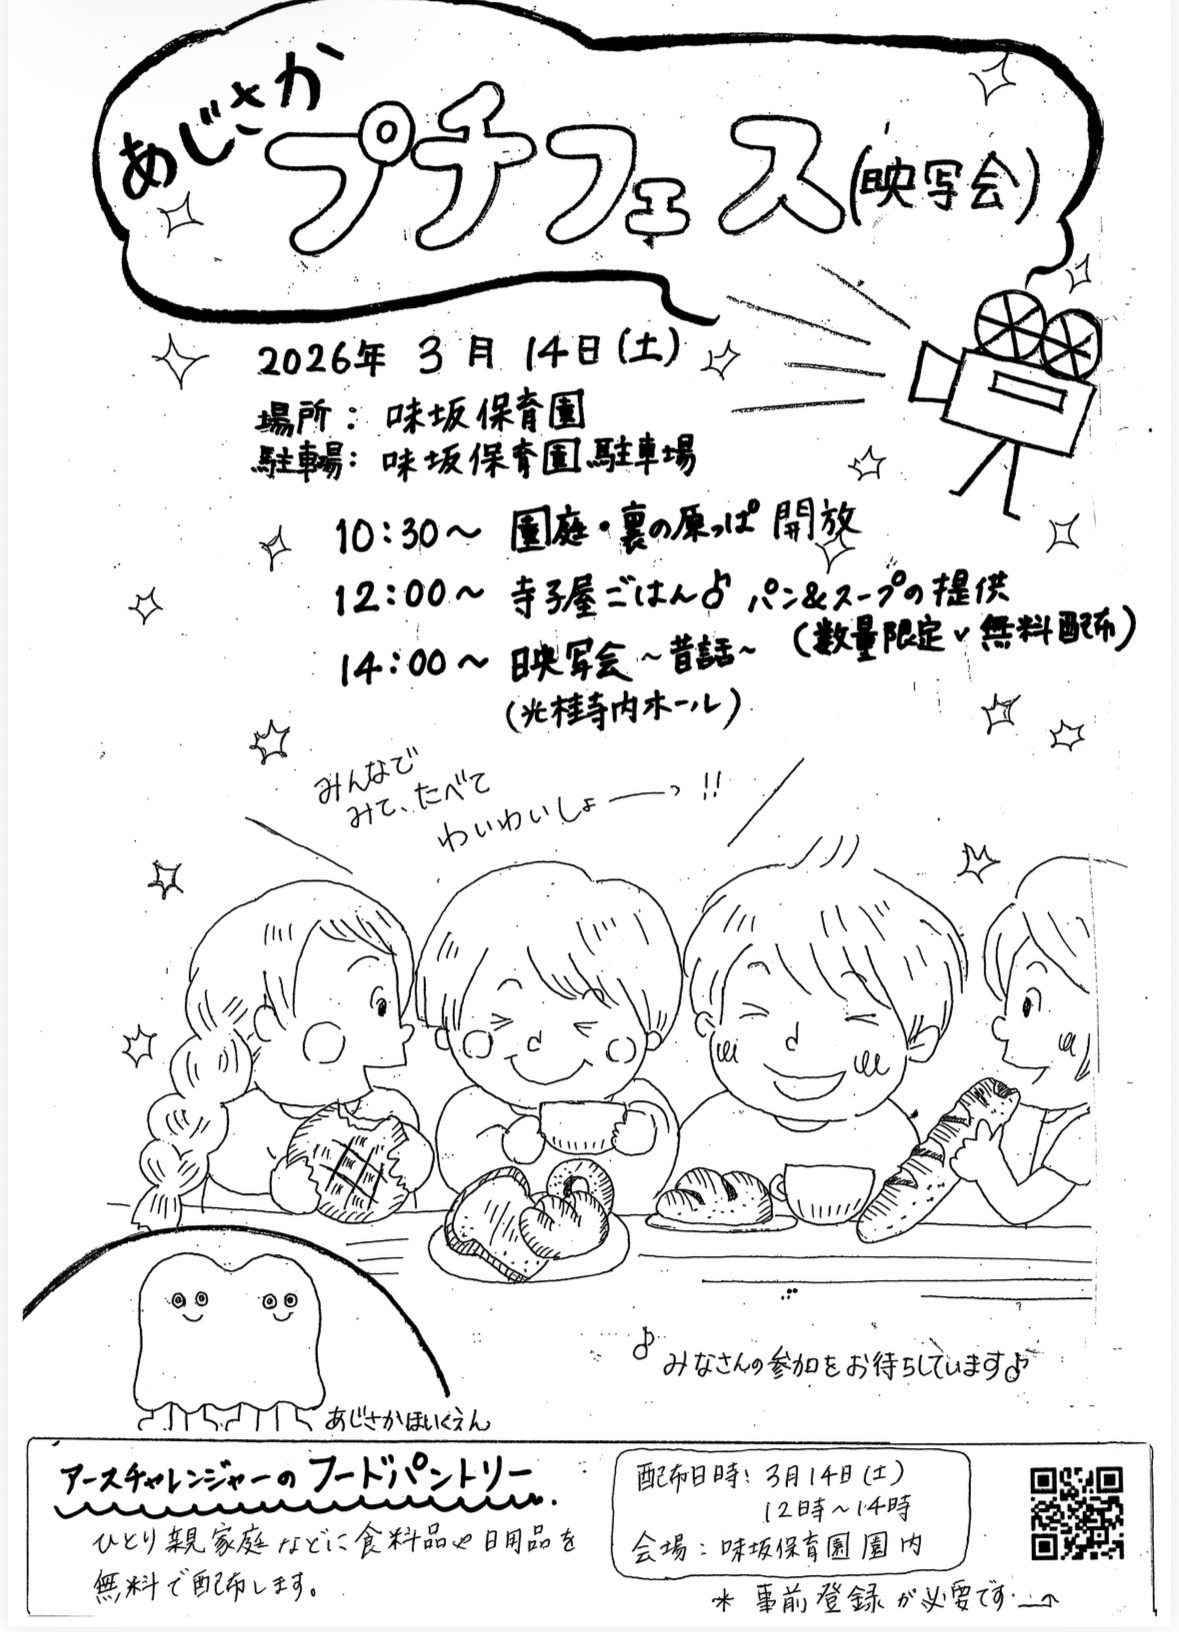 あじさか
プチフェス(映写会)
2026年 3月 14日(土)
場所: 味坂保育園
駐車場: 味坂保育園駐車場
10:30～ 園庭・裏の原っぱ 開放
12:00～ 寺子屋ごはん♪ パン&スープの提供
(数量限定、無料配布)
14:00～ 映写会 ～昔話～
(光桂寺内ホール)
みんなで
みて、たべて
わいわいしょーっ!!
♪ みなさんの参加をお待ちしています♪
あじさかほいくえん
アースチャレンジャーの フードパントリー
ひとり親家庭などに食料品や日用品を
無料で配布します。
配布日時: 3月14日(土)
12時～14時
会場: 味坂保育園 園内
* 事前登録が必要です→